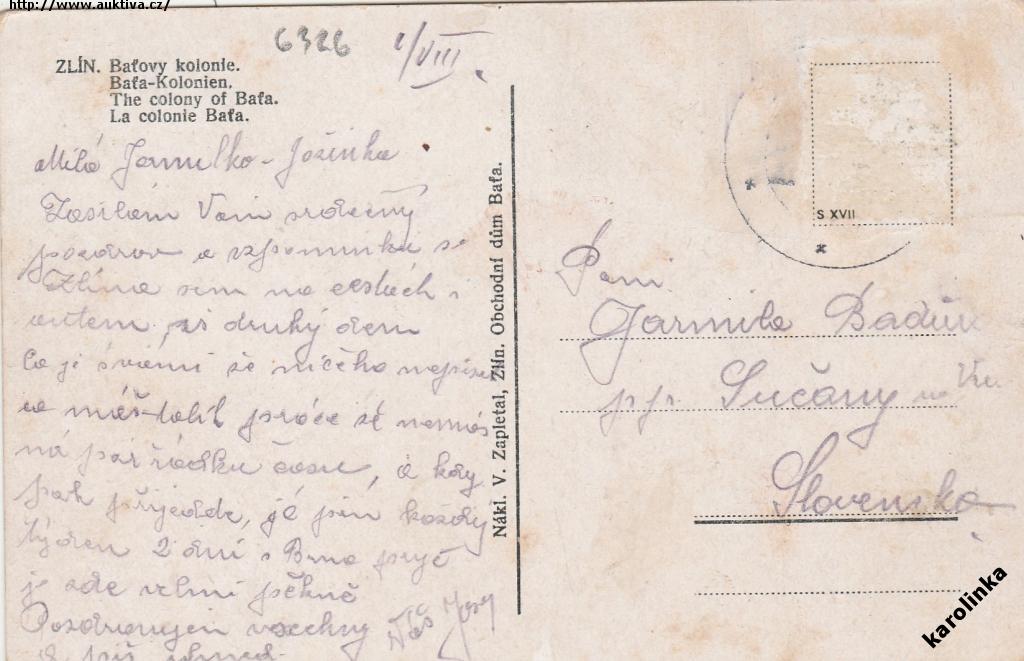 http://www.auktiva.cz/
6326
1/VIII.
ZLÍN. Baťovy kolonie.
Baťa-Kolonien.
The colony of Baťa.
La colonie Baťa.
Milá Jarmilko - Jožinka
Zasílám Vam srdečný
pozdrav a vzpomínku se
Zlína sem na cestách s
autem již druhý den
Co je s vámi že ničeho
máš tolik práce že nemáš
na pár řádku času, a kdy
pak přijedde, já jsem každý
týden 2 dni s Brna pryč
je zde velmi pěkně
Pozdravujem vsechny Váš
Nákl. V. Zapletal, Zlín. Obchodní dům Baťa.
S XVII
Pani
Jarmila
Sučany
Slovensko
karolinka